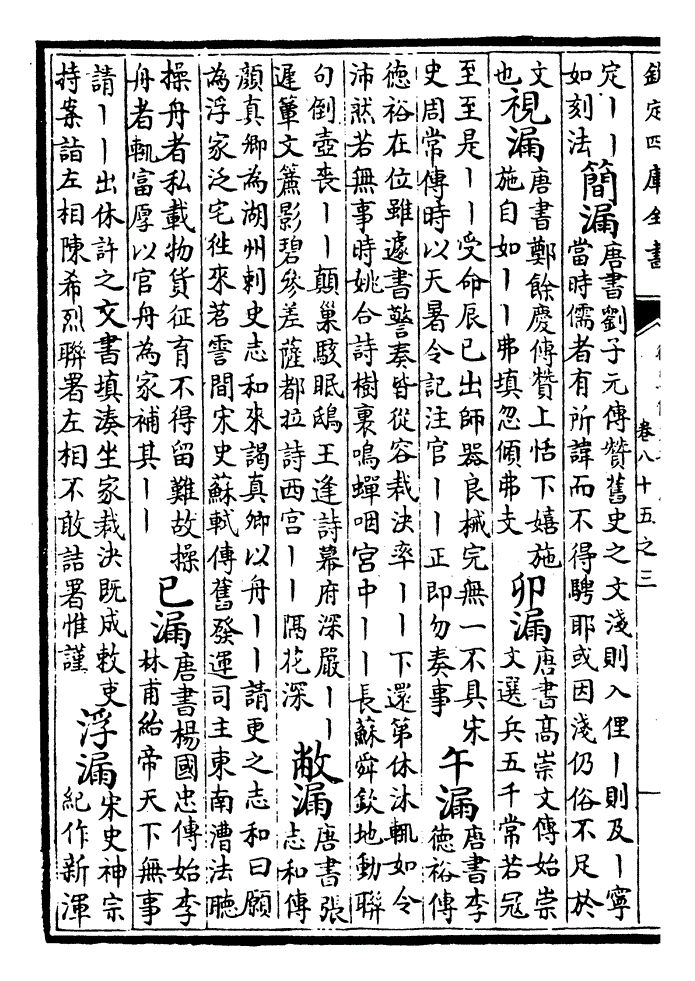 欽定四庫全書
卷八十五之三
定丨丨
如刻法
簡漏
唐書劉子元傳贊舊史之文淺則入俚丨則及丨寧
當時儒者有所諱而不得騁耶或因淺仍俗不足於
文
也
視漏
唐書鄭餘慶傳贊上恬下嬉施
施自如丨丨弗填忽傾弗支
卯漏
唐書高崇文傳始崇
文選兵五千常若冦
至至是丨丨受命辰已出師器良械完無一不具宋
史周常傳時以天暑令記注官丨丨正即勿奏事
午漏
唐書李
德裕傳
德裕在位雖遽書警奏皆從容裁決率丨丨下還第休沐輒如令
沛然若無事時姚合詩樹裏鳴蟬咽宮中丨丨長蘇舜欽地動聯
句倒壺喪丨丨顛巢駭眠鴟王逢詩幕府深嚴丨丨
遲簟文簾影碧參差薩都拉詩西宫丨丨隔花深
敝漏
唐書張
志和傳
顔真卿為湖州刺史志和來謁真卿以舟丨丨請更之志和曰願
為浮家泛宅往來苕霅間宋史蘇軾傳舊發運司主東南漕法聽
操舟者私載物貨征育不得留難故操
舟者輒富厚以官舟為家補其丨丨
已漏
唐書楊國忠傳始李
林甫紿帝天下無事
請丨丨出休許之文書填湊坐家裁決既成敕吏
持案詣左相陳希烈聯署左相不敢詰署惟謹
浮漏
宋史神宗
紀作新渾